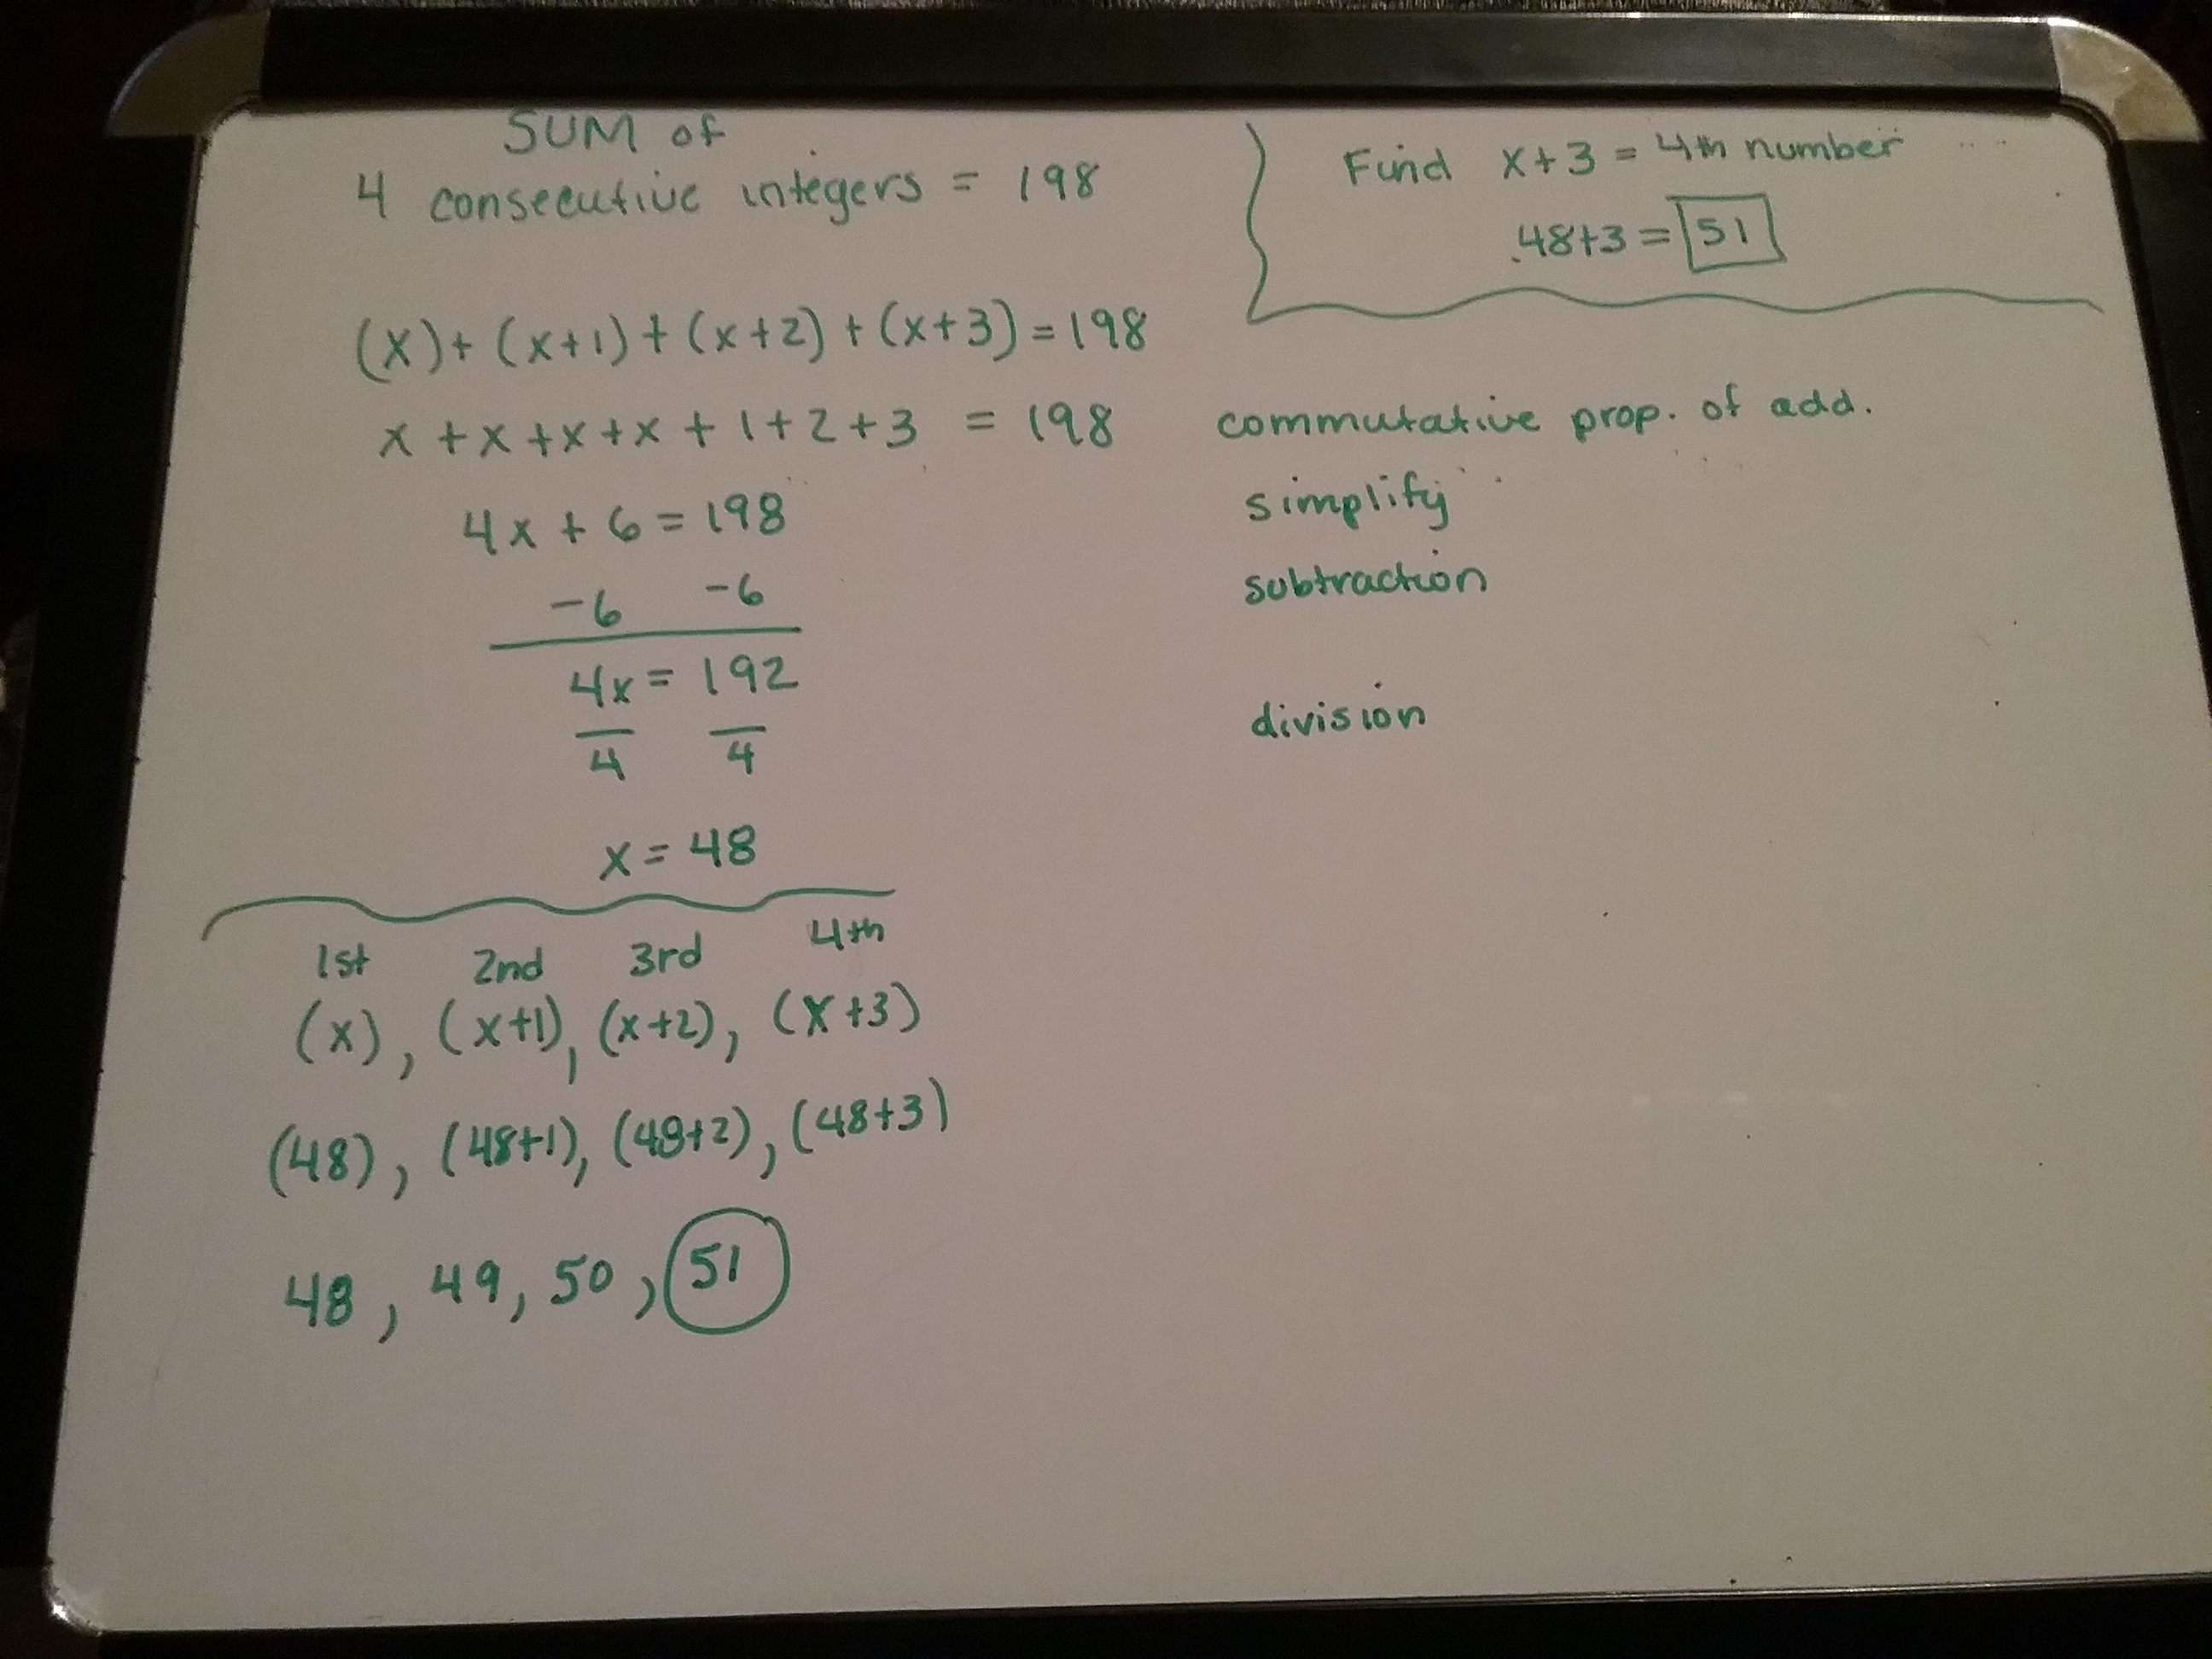 SUM of
4 consecutive integers = 198
Find x+3 = 4th number
48+3 = 51
(x) + (x+1) + (x+2) + (x+3) = 198
x + x + x + x + 1 + 2 + 3 = 198 commutative prop. of add.
4x + 6 = 198 simplify
-6 -6 subtraction
4x = 192 division
4 4
x = 48
1st 2nd 3rd 4th
(x), (x+1), (x+2), (x+3)
(48), (48+1), (48+2), (48+3)
48, 49, 50, 51